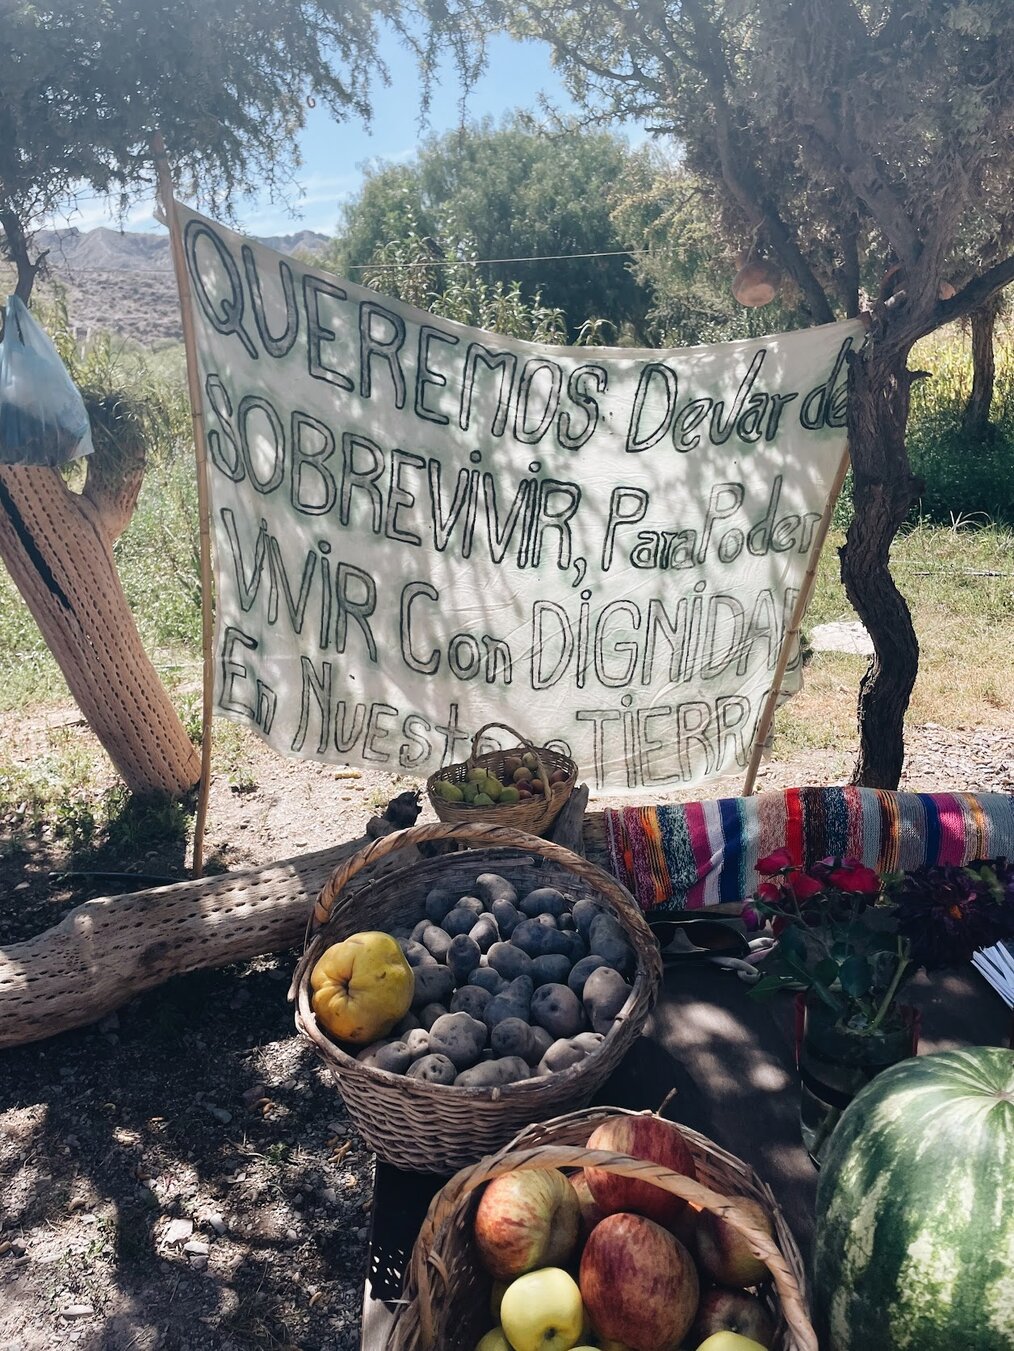 QUEREMOS Devlar de
SOBREViViR, Para Poder
ViViR Con DiGNiDAD
En NuEStra TiERRA